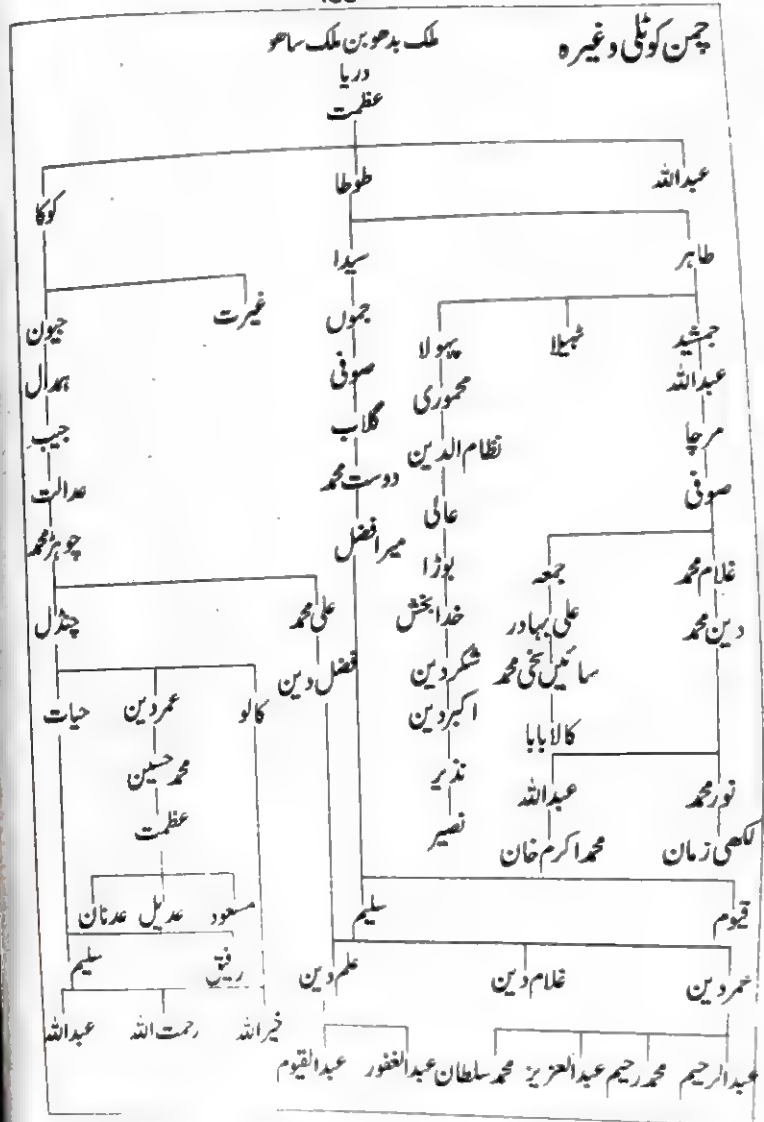 چمن کوٹلی وغیرہ
ملک بدھو بن ملک ساھو
دریا
عظمت
عبداللہ طوطا کوکا
طاہر سیدا
غیرت جیون
جمشید ٹہیلا پہولا جموں
عبداللہ محموری صوفی ہمدال
مرچا نظام الدین گلاب جیب
صوفی عالی دوست محمد عدالت
میر افضل چوہڑ محمد
غلام محمد جمعہ بوڑا
دین محمد علی بہادر خدا بخش علی محمد چنڈل
سائیں سخی محمد شکر دین فضل دین
کالا بابا اکبر دین کالو عمر دین حیات
نور محمد عبداللہ نذیر محمد حسین
لکھی زمان محمد اکرم خان نصیر عظمت
قیوم سلیم مسعود عدیل عدنان
خمر دین غلام دین علم دین رفیق سلیم
خیر اللہ رحمت اللہ عبداللہ
عبدالرحیم محمد رحیم عبدالعزیز محمد سلطان عبدالغفور عبدالقیوم